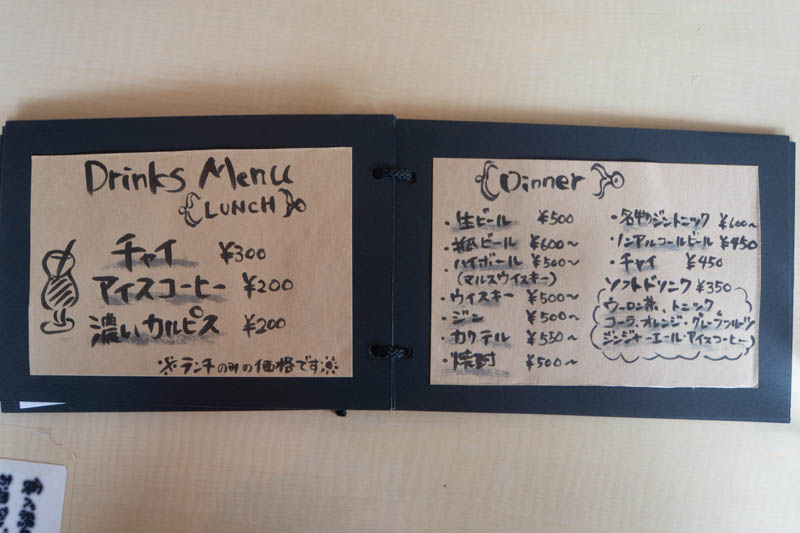 Drinks Menu
LUNCH
チャイ ¥300
アイスコーヒー ¥200
濃いカルピス ¥200
※ランチのみの価格です※
Dinner
・生ビール ¥500
・瓶ビール ¥600〜
・ハイボール ¥500〜
(マルスウイスキー)
・ウイスキー ¥500〜
・ジン ¥500〜
・カクテル ¥550〜
・焼酎 ¥500〜
・名物ジントニック ¥600〜
・ノンアルコールビール ¥450
・チャイ ¥450
ソフトドリンク ¥350
ウーロン茶、トニック
コーラ、オレンジ・グレープフルーツ
ジンジャーエール・アイスコーヒー